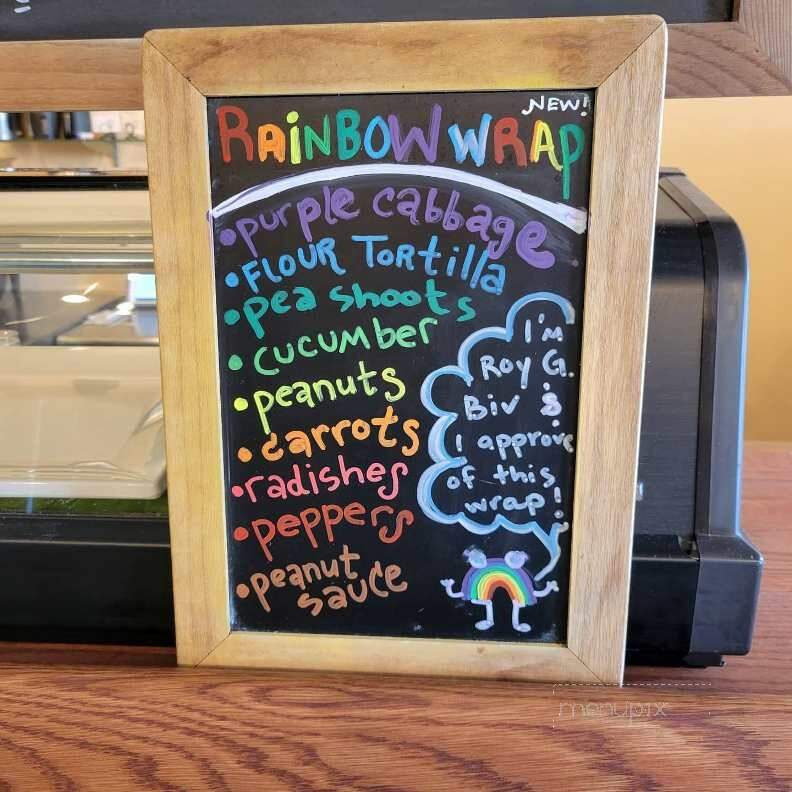 NEW!
RAiNBOW WRAP
•purple cabbage
•FLOUR TORtilla
•pea shoots
•CUCUMBER
•peanuts
•carrots
•radishes
•peppers
•peanut
sauce
I'm
Roy G.
Biv &
I approve
of this
wrap!
menupix